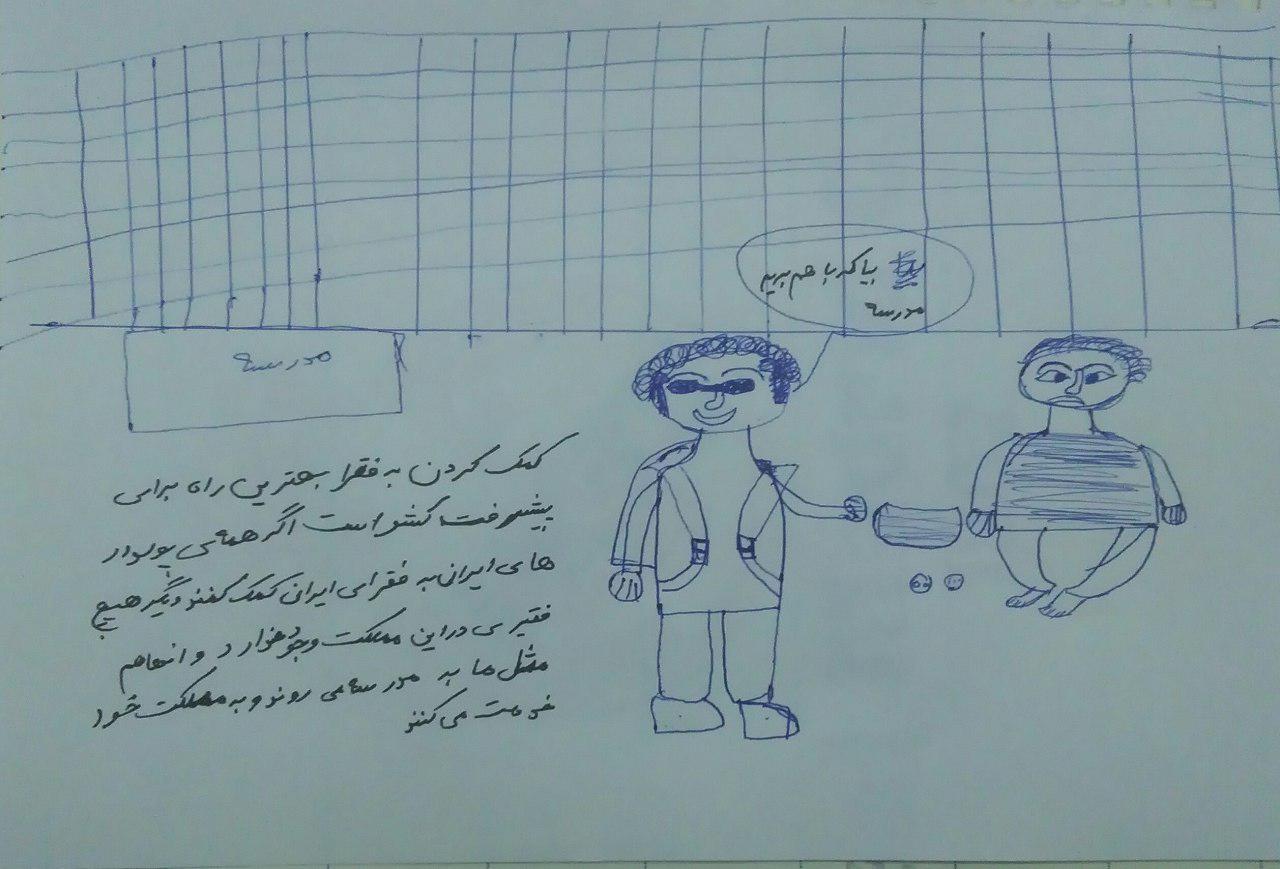 بیا که با هم بریم
مدرسه
مدرسه
کمک کردن به فقرا بهترین راه برای
پیشرفت کشور است اگر همه ی پولدار
های ایران به فقرای ایران کمک کنند دیگر هیچ
فقیری در این مملکت وجود ندارد و انها هم
مثل ما به مدرسه می روند و به مملکت خود
خدمت می کنند